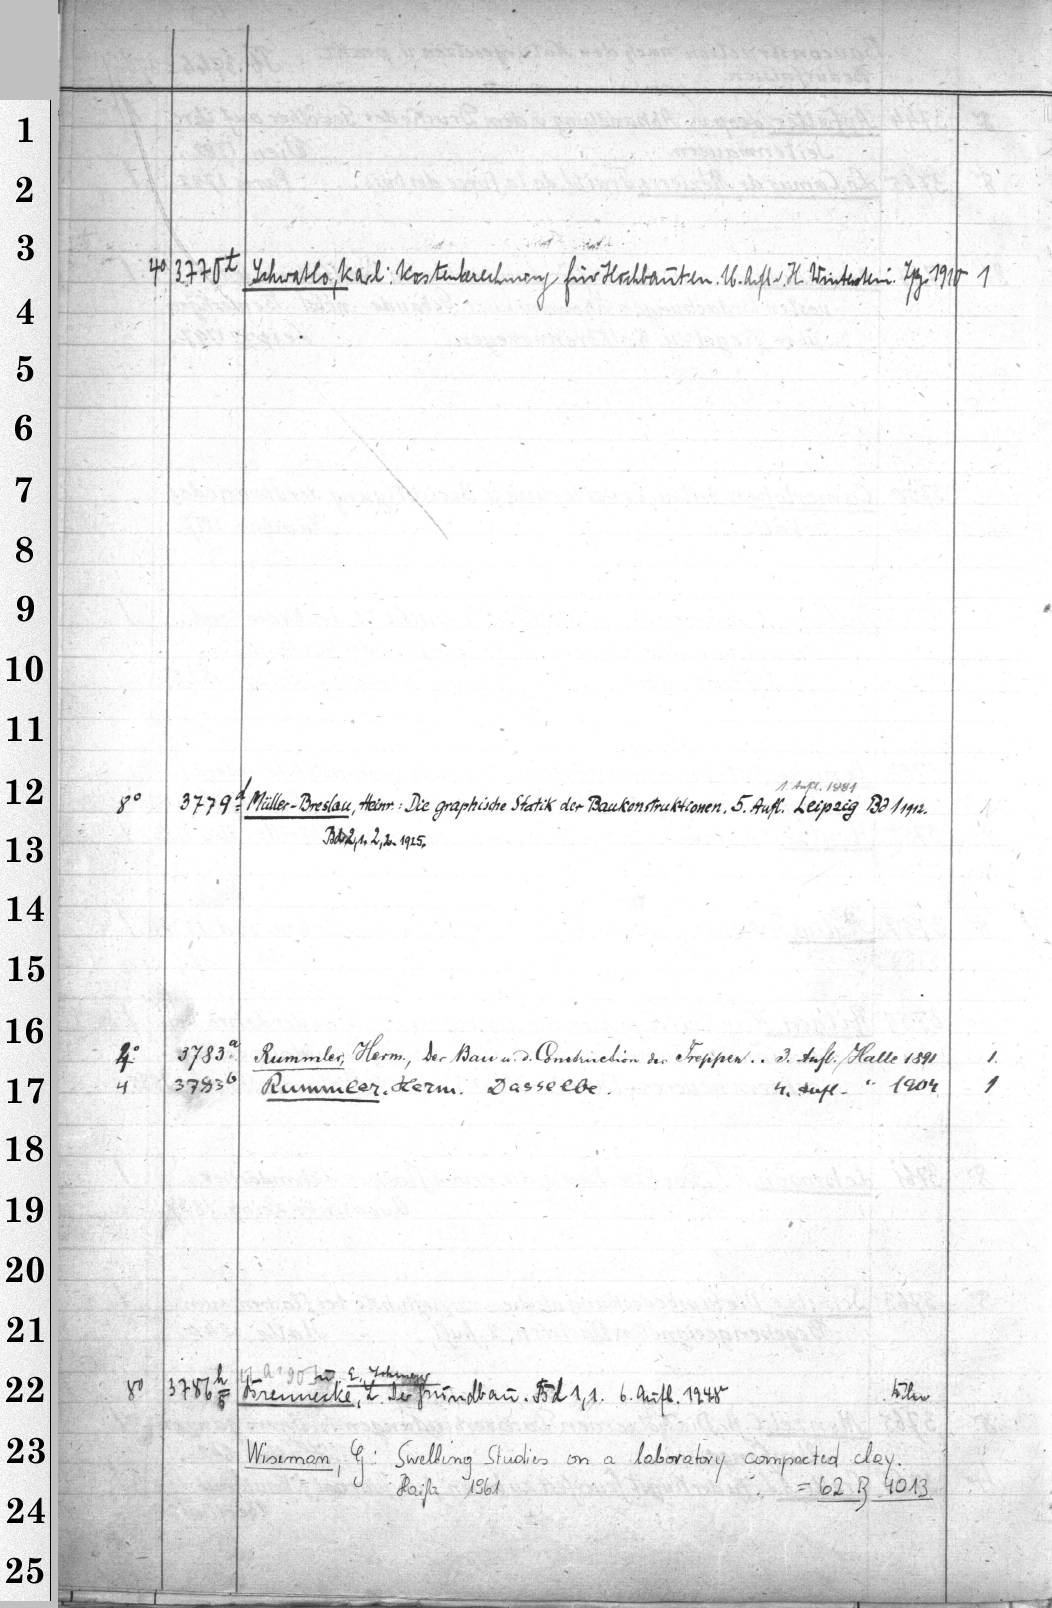 1
2
3
4° 3770t Schwatlo, Karl: Kostenberechnung für Hochbauten. 16. Aufl. v. H. Winterstein. Lpz. 1910 1
4
5
6
7
8
9
10
11
1. Aufl. 1881
12
8° 3779d Müller-Breslau, Heinr.: Die graphische Statik der Baukonstruktionen. 5. Aufl. Leipzig Bd 1 1912.
Bd 2,1. 2,2. 1925.
13
14
15
16
4° 3783a Rummler, Herm., Der Bau u. d. Construction der Treppen.. 3. Aufl. Halle 1891 1.
17
4 3783b Rummler. Herm. Dasselbe. 4. Aufl. " 1904 1
18
19
20
21
u. E. Lohmeyer
22
8° 3786h Brennecke, L. Der Grundbau. Bd 1,1. 6. Aufl. 1948
23
Wiseman, G: Swelling Studies on a laboratory compacted clay.
Haifa 1961 = 62 B 4013
24
25